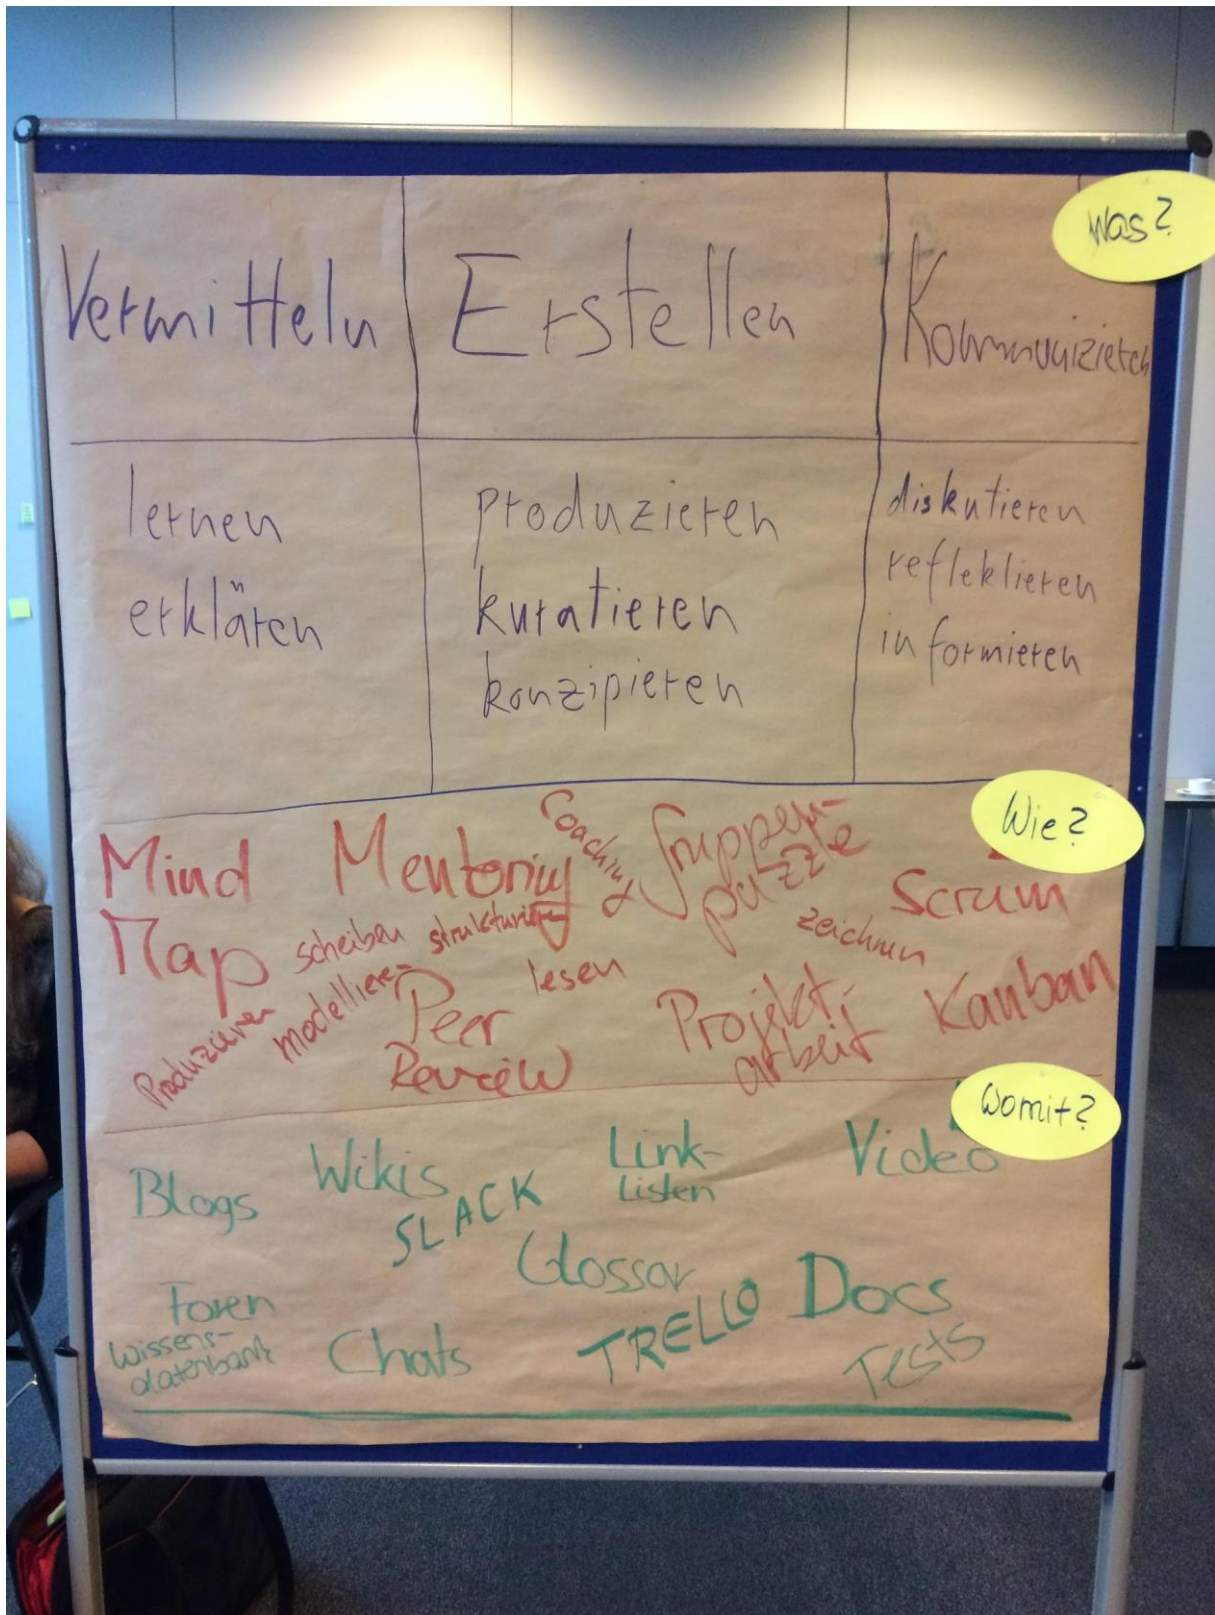 Was?
Vermitteln
Erstellen
Kommunizieren
lernen
erklären
produzieren
kuratieren
konzipieren
diskutieren
reflektieren
informieren
Wie?
Mind
Map
Mentoring
Coaching
Gruppen-
puzzle
Scrum
scheiben
strukturieren
zeichnen
lesen
Produzieren
modellieren
Peer
Review
Projekt-
arbeit
Kanban
Womit?
Blogs
Wikis
SLACK
Link-
Listen
Video
Glossar
Foren
Wissens-
datenbank
Chats
TRELLO
Docs
Tests